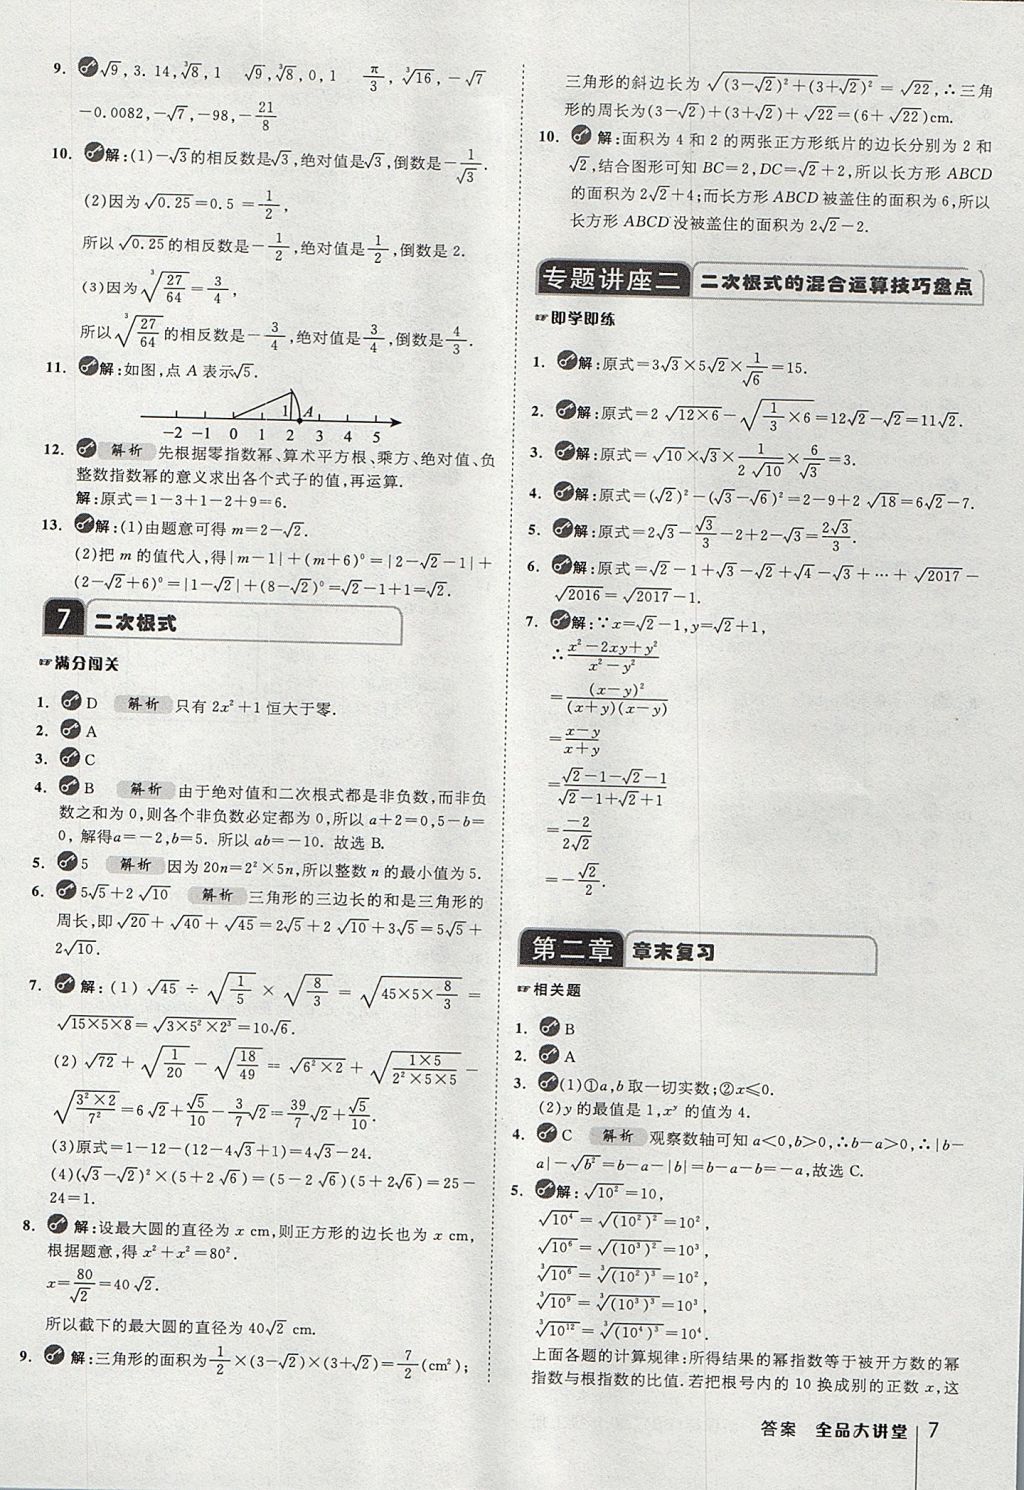 9. √9,3.14,∛8,1　√9,∛8,0,1　π/3,∛16,-√7
-0.0082,-√7,-98,-21/8
10. 解:(1)-√3的相反数是√3,绝对值是√3,倒数是-1/√3.
(2)因为√0.25=0.5=1/2,
所以√0.25的相反数是-1/2,绝对值是1/2,倒数是2.
(3)因为∛(27/64)=3/4,
所以∛(27/64)的相反数是-3/4,绝对值是3/4,倒数是4/3.
11. 解:如图,点A表示√5.
1 A
-2 -1 0 1 2 3 4 5
12. 解析 先根据零指数幂、算术平方根、乘方、绝对值、负
整数指数幂的意义求出各个式子的值,再运算.
解:原式=1-3+1-2+9=6.
13. 解:(1)由题意可得m=2-√2.
(2)把m的值代入,得|m-1|+(m+6)⁰=|2-√2-1|+
(2-√2+6)⁰=|1-√2|+(8-√2)⁰=√2-1+1=√2.
7 二次根式
☞满分闯关
1. D 解析 只有2x²+1恒大于零.
2. A
3. C
4. B 解析 由于绝对值和二次根式都是非负数,而非负
数之和为0,则各个非负数必定都为0,所以a+2=0,5-b=
0, 解得a=-2,b=5. 所以ab=-10. 故选B.
5. 5 解析 因为20n=2²×5n,所以整数n的最小值为5.
6. 5√5+2√10 解析 三角形的三边长的和是三角形的
周长,即√20+√40+√45=2√5+2√10+3√5=5√5+
2√10.
7. 解:(1)√45÷√(1/5)×√(8/3)=√(45×5×8/3)=
√(15×5×8)=√(3×5²×2³)=10√6.
(2)√72+√(1/20)-√(18/49)=√(6²×2)+√((1×5)/(2²×5×5))-
√((3²×2)/7²)=6√2+√5/10-3/7√2=39/7√2+√5/10.
(3)原式=1-12-(12-4√3+1)=4√3-24.
(4)(√3-√2)²×(5+2√6)=(5-2√6)(5+2√6)=25-
24=1.
8. 解:设最大圆的直径为x cm,则正方形的边长也为x cm,
根据题意,得x²+x²=80².
x=80/√2=40√2.
所以截下的最大圆的直径为40√2 cm.
9. 解:三角形的面积为1/2×(3-√2)×(3+√2)=7/2(cm²);
三角形的斜边长为√((3-√2)²+(3+√2)²)=√22,∴三角
形的周长为(3-√2)+(3+√2)+√22=(6+√22)cm.
10. 解:面积为4和2的两张正方形纸片的边长分别为2和
√2,结合图形可知BC=2,DC=√2+2,所以长方形ABCD
的面积为2√2+4;而长方形ABCD被盖住的面积为6,所以
长方形ABCD没被盖住的面积为2√2-2.
专题讲座二 二次根式的混合运算技巧盘点
☞即学即练
1. 解:原式=3√3×5√2×1/√6=15.
2. 解:原式=2√(12×6)-√(1/3×6)=12√2-√2=11√2.
3. 解:原式=√10×√3×1/(2√10)×6/√3=3.
4. 解:原式=(√2)²-(√3-√6)²=2-9+2√18=6√2-7.
5. 解:原式=2√3-√3/3-2+2-√3=2√3/3.
6. 解:原式=√2-1+√3-√2+√4-√3+…+√2017-
√2016=√2017-1.
7. 解:∵x=√2-1,y=√2+1,
∴(x²-2xy+y²)/(x²-y²)
=(x-y)²/((x+y)(x-y))
=(x-y)/(x+y)
=(√2-1-√2-1)/(√2-1+√2+1)
=-2/(2√2)
=-√2/2.
第二章 章末复习
☞相关题
1. B
2. A
3. (1)①a,b取一切实数;②x≤0.
(2)y的最值是1,xʸ的值为4.
4. C 解析 观察数轴可知a<0,b>0,∴b-a>0,∴|b-
a|-√b²=b-a-|b|=b-a-b=-a,故选C.
5. 解:√10²=10,
√10⁴=√(10²)²=10²,
√10⁶=√(10³)²=10³,
∛10⁶=∛(10²)³=10²,
∛10⁹=∛(10³)³=10³,
∛10¹²=∛(10⁴)³=10⁴.
上面各题的计算规律:所得结果的幂指数等于被开方数的幂
指数与根指数的比值.若把根号内的10换成别的正数x,这
答案 全品大讲堂 7